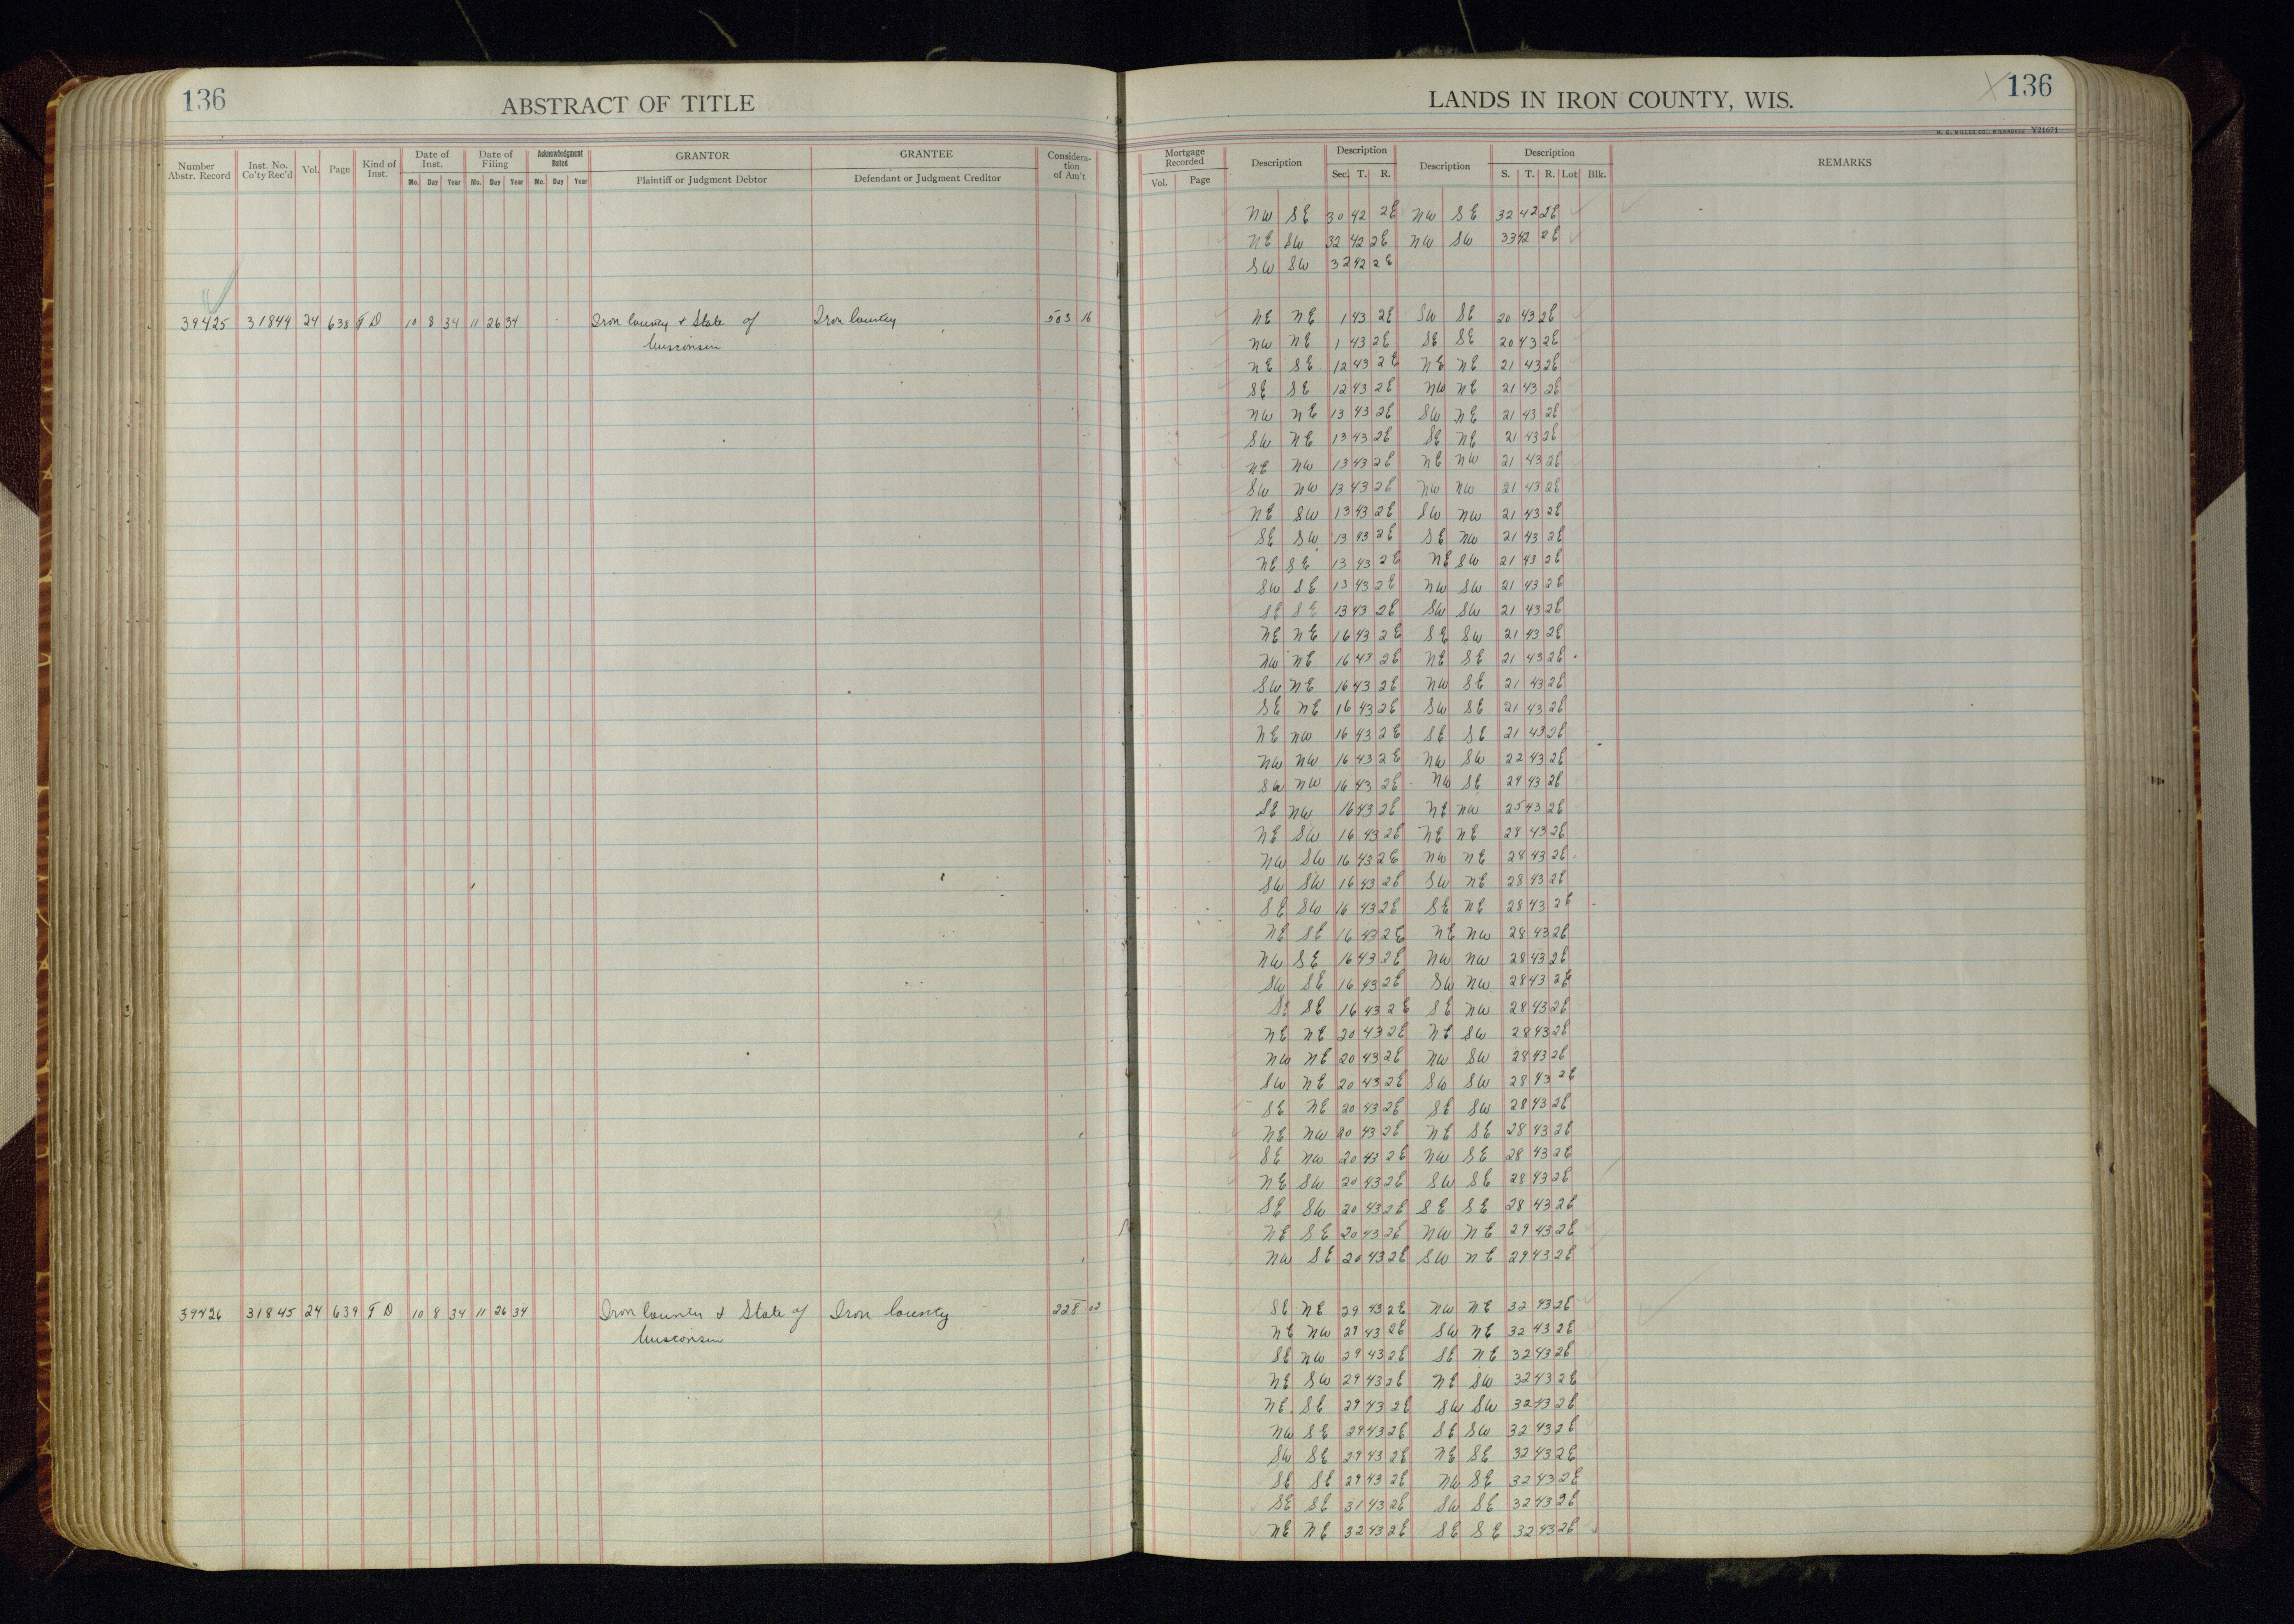 136 ABSTRACT OF TITLE LANDS IN IRON COUNTY, WIS. 136
H. C. MILLER CO., MILWAUKEE Y21671
Number Abstr. Record Inst. No. Co'ty Rec'd Vol. Page Kind of Inst. Date of Inst. Mo. Day Year Date of Filing Mo. Day Year Acknowledgment Dated Mo. Day Year GRANTOR Plaintiff or Judgment Debtor GRANTEE Defendant or Judgment Creditor Considera-tion of Am't Mortgage Recorded Vol. Page Description Description Sec. T. R. Description Description S. T. R. Lot Blk. REMARKS
NW SE 30 42 2E NW SE 32 42 2E
NE SW 32 42 2E NW SW 33 42 2E
SW SW 32 42 2E
39425 31844 24 638 T D 10 8 34 11 26 34 Iron County & State of Iron County 503 16 NE NE 1 43 2E SW SE 20 43 2E
Wisconsin NW NE 1 43 2E SE SE 20 43 2E
NE SE 12 43 2E NE NE 21 43 2E
SE SE 12 43 2E NW NE 21 43 2E
NW NE 13 43 2E SW NE 21 43 2E
SW NE 13 43 2E SE NE 21 43 2E
NE NW 13 43 2E NE NW 21 43 2E
SW NW 13 43 2E NW NW 21 43 2E
NE SW 13 43 2E SW NW 21 43 2E
SE SW 13 43 2E SE NW 21 43 2E
NE SE 13 43 2E NE SW 21 43 2E
SW SE 13 43 2E NW SW 21 43 2E
SE SE 13 43 2E SW SW 21 43 2E
NE NE 16 43 2E SE SW 21 43 2E
NW NE 16 43 2E NE SE 21 43 2E
SW NE 16 43 2E NW SE 21 43 2E
SE NE 16 43 2E SW SE 21 43 2E
NE NW 16 43 2E SE SE 21 43 2E
NW NW 16 43 2E NW SW 22 43 2E
SW NW 16 43 2E NW SE 24 43 2E
SE NW 16 43 2E NE NW 25 43 2E
NE SW 16 43 2E NE NE 28 43 2E
NW SW 16 43 2E NW NE 28 43 2E
SW SW 16 43 2E SW NE 28 43 2E
SE SW 16 43 2E SE NE 28 43 2E
NE SE 16 43 2E NE NW 28 43 2E
NW SE 16 43 2E NW NW 28 43 2E
SW SE 16 43 2E SW NW 28 43 2E
SE SE 16 43 2E SE NW 28 43 2E
NE NE 20 43 2E NE SW 28 43 2E
NW NE 20 43 2E NW SW 28 43 2E
SW NE 20 43 2E SW SW 28 43 2E
SE NE 20 43 2E SE SW 28 43 2E
NE NW 20 43 2E NE SE 28 43 2E
SE NW 20 43 2E NW SE 28 43 2E
NE SW 20 43 2E SW SE 28 43 2E
SE SW 20 43 2E SE SE 28 43 2E
NE SE 20 43 2E NW NE 29 43 2E
NW SE 20 43 2E SW NE 29 43 2E
39426 31845 24 639 T D 10 8 34 11 26 34 Iron County & State of Iron County 228 02 SE NE 29 43 2E NW NE 32 43 2E
Wisconsin NE NW 29 43 2E SW NE 32 43 2E
SE NW 29 43 2E SE NE 32 43 2E
NE SW 29 43 2E NE SW 32 43 2E
NE SE 29 43 2E SW SW 32 43 2E
NW SE 29 43 2E SE SW 32 43 2E
SW SE 29 43 2E NE SE 32 43 2E
SE SE 29 43 2E NW SE 32 43 2E
SE SE 31 43 2E SW SE 32 43 2E
NE NE 32 43 2E SE SE 32 43 2E